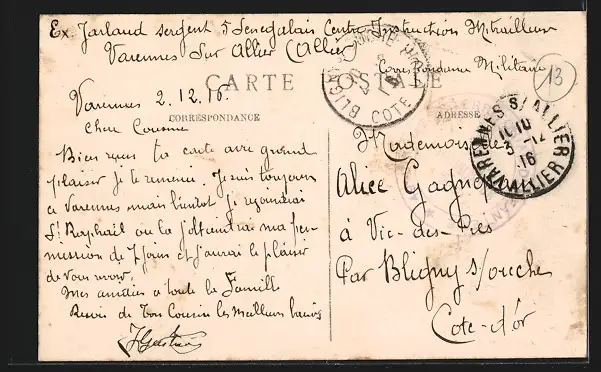 Ex. Jarland sergent 5 Senegalais Centre Instruction Mitrailleur
Varennes Sur Allier (Allier)
Correspondance Militaire
13
CARTE POSTALE
CORRESPONDANCE
ADRESSE
Varennes 2.12.16.
Chere Cousine
Bien reçus ta carte avec grand
plaisir je te remercie. Je suis toujours
a Varennes mais bientot je rejoindrai
St Raphaël ou la j'obtiendrai ma per-
mission de 7 jours et j'aurai le plaisir
de vous revoir.
Mes amitiés a toute la Famille
Recois de Ton Cousin les meilleurs baisers
Mademoiselle
Alice Gagnot
à Vic-des-Prés
Par Bligny s/ouche
Cote-d'or
VARENNES S/ ALLIER
3 -12
16
ALLIER
BLIGNY
COTE